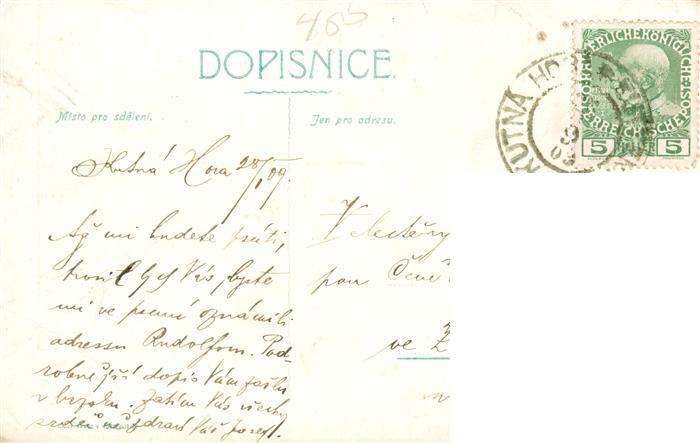 486
DOPISNICE.
Místo pro sdělení.
Jen pro adresu.
KUTNÁ HORA
KAISERLICHE KÖNIGLICHE
ÖSTERREICHISCHE
5 HELLER 5
Kutná Hora 28/I 09.
Až mi budete psáti,
prosil bych Vás, byste
mi ve psaní oznámili
adressu Rudolfovu. Pod-
robnější dopis Vám zašlu
v brzku. Zatím Vás všechny
srdečně zdraví Váš Josef.
Velectěný
pan Čeně
ve